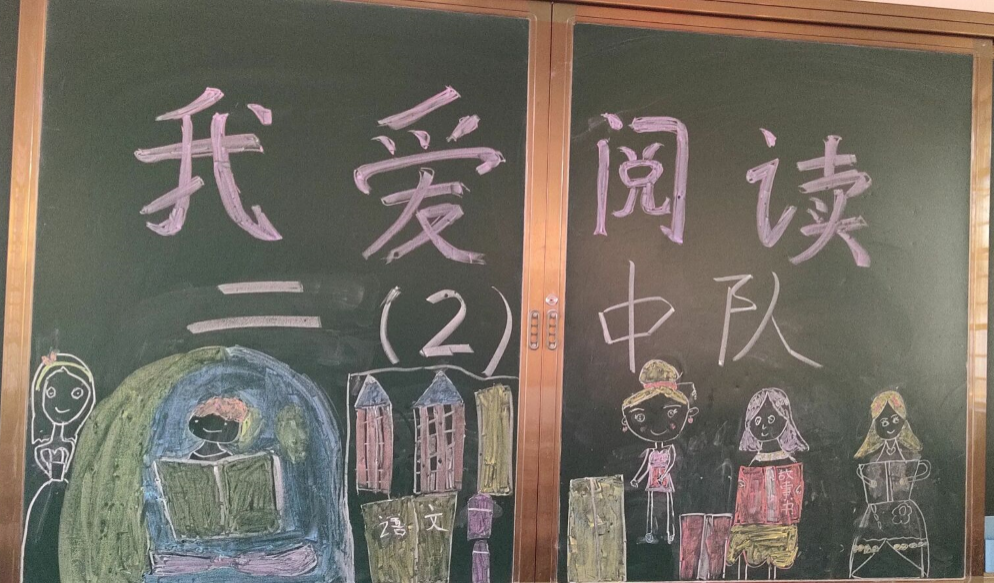 我爱阅读
二(2)中队
语文
故事书